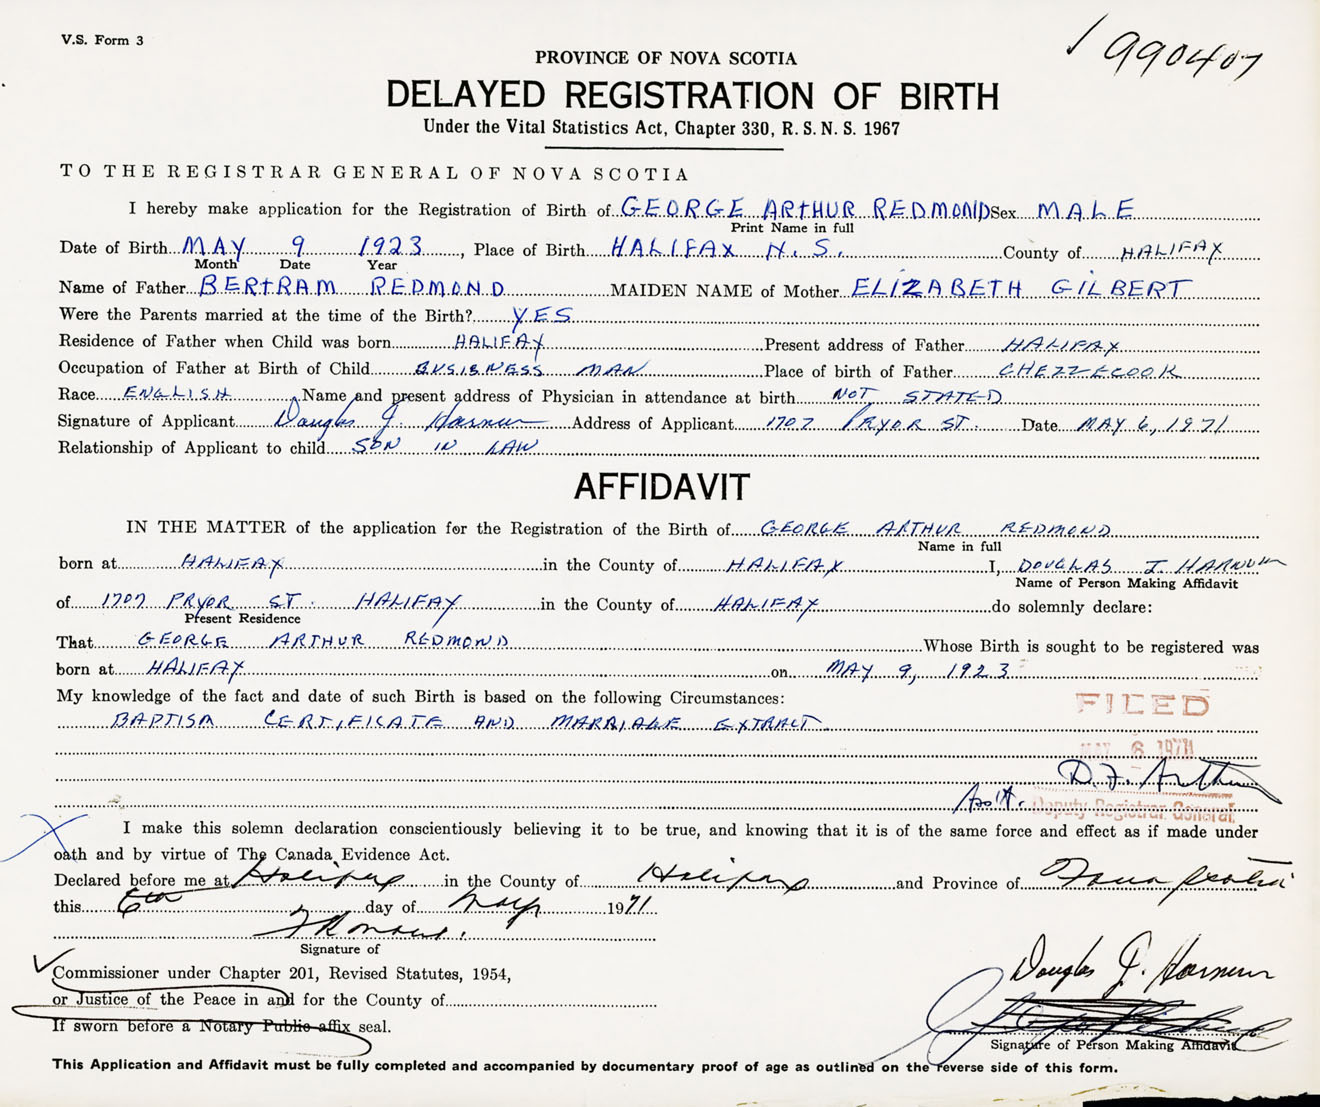 V.S. Form 3
1990407
PROVINCE OF NOVA SCOTIA
DELAYED REGISTRATION OF BIRTH
Under the Vital Statistics Act, Chapter 330, R. S. N. S. 1967
TO THE REGISTRAR GENERAL OF NOVA SCOTIA
I hereby make application for the Registration of Birth of GEORGE ARTHUR REDMOND Sex MALE
Print Name in full
Date of Birth MAY 9 1923, Place of Birth HALIFAX N. S. County of HALIFAX
Month Date Year
Name of Father BERTRAM REDMOND MAIDEN NAME of Mother ELIZABETH GILBERT
Were the Parents married at the time of the Birth? YES
Residence of Father when Child was born HALIFAX Present address of Father HALIFAX
Occupation of Father at Birth of Child BUSINESS MAN Place of birth of Father CHEZZECOOK
Race ENGLISH, Name and present address of Physician in attendance at birth NOT STATED
Signature of Applicant Douglas J. Harnum Address of Applicant 1707 PRYOR ST. Date MAY 6, 1971
Relationship of Applicant to child SON IN LAW
AFFIDAVIT
IN THE MATTER of the application for the Registration of the Birth of GEORGE ARTHUR REDMOND
Name in full
born at HALIFAX in the County of HALIFAX I, DOUGLAS J. HARNUM
Name of Person Making Affidavit
of 1707 PRYOR ST. HALIFAX in the County of HALIFAX do solemnly declare:
Present Residence
That GEORGE ARTHUR REDMOND Whose Birth is sought to be registered was
born at HALIFAX on MAY 9, 1923
My knowledge of the fact and date of such Birth is based on the following Circumstances:
BAPTISM CERTIFICATE AND MARRIAGE EXTRACT
FILED
MAY 6 1971
D.F. Arthur
Ass't. Deputy Registrar General
I make this solemn declaration conscientiously believing it to be true, and knowing that it is of the same force and effect as if made under
oath and by virtue of The Canada Evidence Act.
Declared before me at Halifax in the County of Halifax and Province of Nova Scotia
this 6th day of May 1971
Signature of
Commissioner under Chapter 201, Revised Statutes, 1954,
or Justice of the Peace in and for the County of
If sworn before a Notary Public affix seal.
Douglas J. Harnum
Signature of Person Making Affidavit
This Application and Affidavit must be fully completed and accompanied by documentary proof of age as outlined on the reverse side of this form.